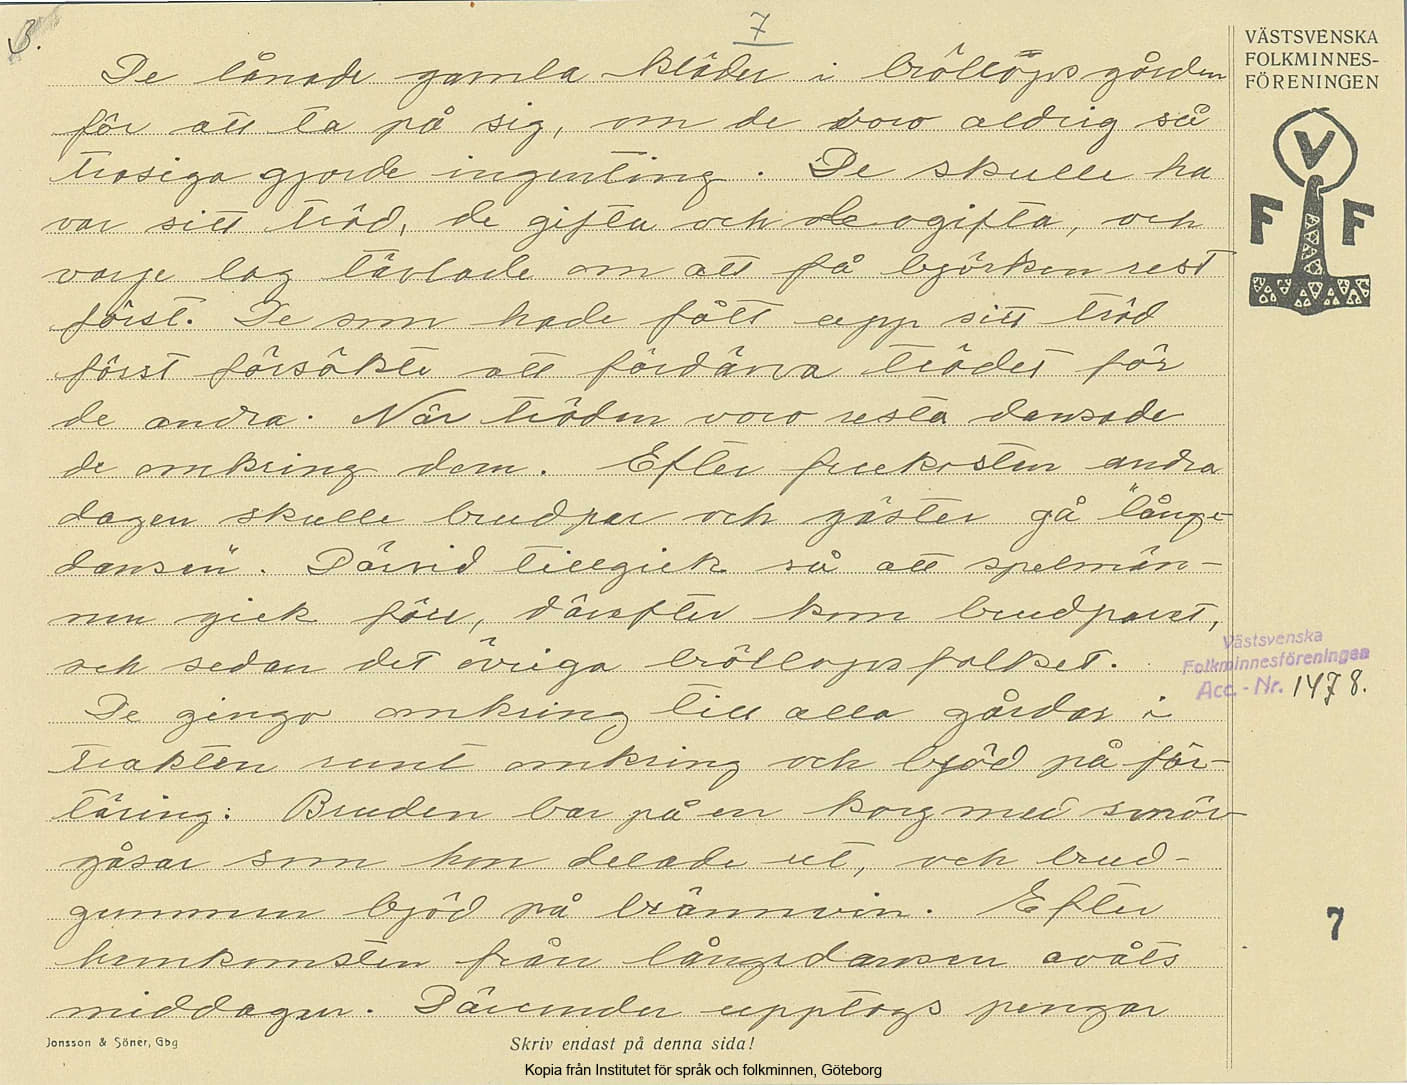 3.
7
De lånade gamla kläder i bröllopsgården
för att ta på sig, om de voro aldrig så
trasiga gjorde ingenting. De skulle ha
var sitt träd, de gifta och de ogifta, och
varje lag tävlade om att få björken rest
först. De som hade fått upp sitt träd
först försökte att fördärva trädet för
de andra. När träden voro resta dansade
de omkring dem. Efter frukosten andra
dagen skulle brudpar och gäster gå "långe-
dansen". Därvid tillgick så att spelmän-
nen gick före, därefter kom brudparet,
och sedan det övriga bröllopsfolket.
De gingo omkring till alla gårdar i
trakten runt omkring och bjöd på för-
täring: Bruden bar på en korg med smör-
gåsar som hon delade ut, och brud-
gummen bjöd på brännvin. Efter
hemkomsten från långedansen avåts
middagen. Därunder upptogs pengar
VÄSTSVENSKA
FOLKMINNES-
FÖRENINGEN
V
F F
Västsvenska
Folkminnesföreningen
Acc.-Nr. 1478.
7
Jonsson & Söner, Gbg
Skriv endast på denna sida!
Kopia från Institutet för språk och folkminnen, Göteborg